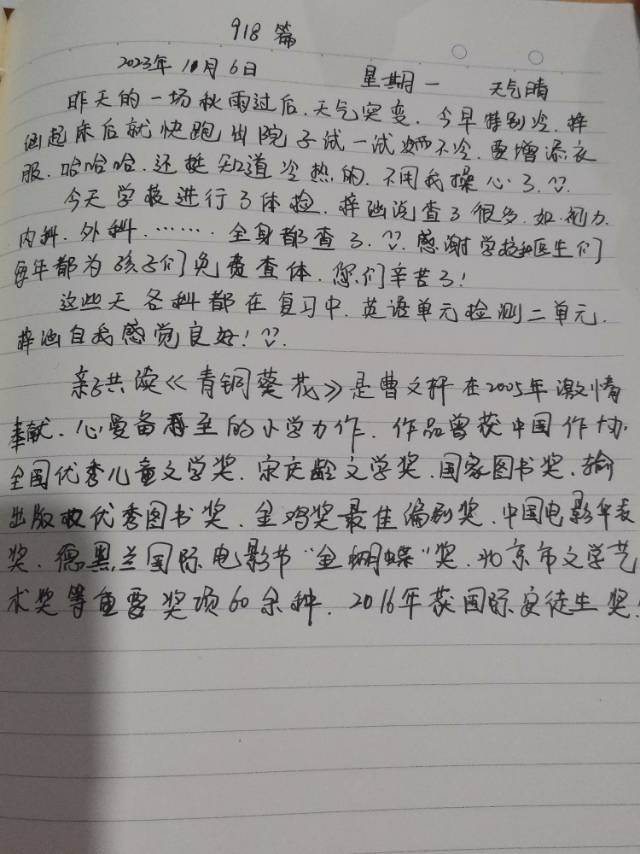 918篇
2023年10月6日 星期一 天气晴
昨天的一场秋雨过后.天气突变.今早特别冷.梓
涵起床后就快跑出院子试一试她不冷.要增添衣
服.哈哈哈.还挺知道冷热的.不用我操心了.
今天学校进行了体检.梓涵说查了很多.如视力.
内科.外科.……全身都查了.感谢学校和医生们
每年都为孩子们免费查体.您们辛苦了!
这些天各科都在复习中.英语单元检测二单元.
梓涵自我感觉良好!
亲子共读《青铜葵花》是曹文轩在2005年激情
奉献.心爱备尋至的小学力作.作品曾获中国作协.
全国优秀儿童文学奖.宋庆龄文学奖.国家图书奖.输
出版权优秀图书奖.金鸡奖最佳编剧奖.中国电影华表
奖.德黑兰国际电影节"金蝴蝶"奖.北京市文学艺
术奖等重要奖项60余种.2016年获国际安徒生奖!